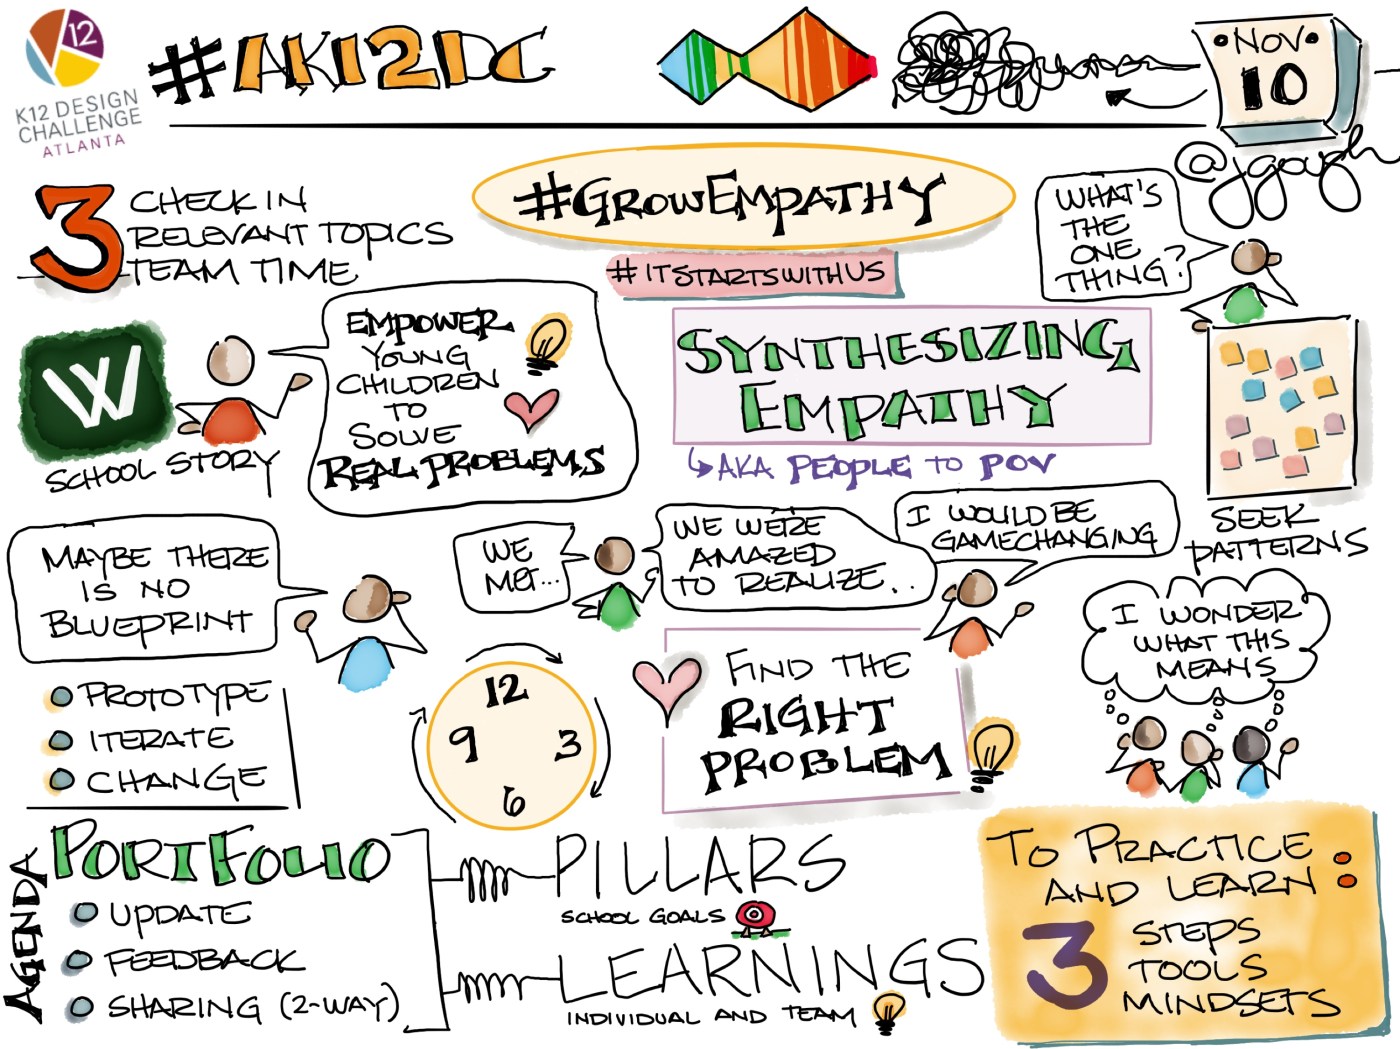 12
K12 DESIGN
CHALLENGE
ATLANTA
#AK12DC
NOV
10
@jgough
3
CHECK IN
RELEVANT TOPICS
TEAM TIME
#GROWEMPATHY
#ITSTARTSWITHUS
WHAT'S
THE
ONE
THING?
W
SCHOOL STORY
EMPOWER
YOUNG
CHILDREN
TO
SOLVE
REAL PROBLEMS
SYNTHESIZING
EMPATHY
AKA PEOPLE TO POV
SEEK
PATTERNS
MAYBE THERE
IS NO
BLUEPRINT
WE
MET...
WE WERE
AMAZED
TO REALIZE...
I WOULD BE
GAMECHANGING
I WONDER
WHAT THIS
MEANS
PROTOTYPE
ITERATE
CHANGE
12
9 3
6
FIND THE
RIGHT
PROBLEM
AGENDA
PORTFOLIO
UPDATE
FEEDBACK
SHARING (2-WAY)
PILLARS
SCHOOL GOALS
LEARNINGS
INDIVIDUAL AND TEAM
TO PRACTICE
AND LEARN:
3
STEPS
TOOLS
MINDSETS